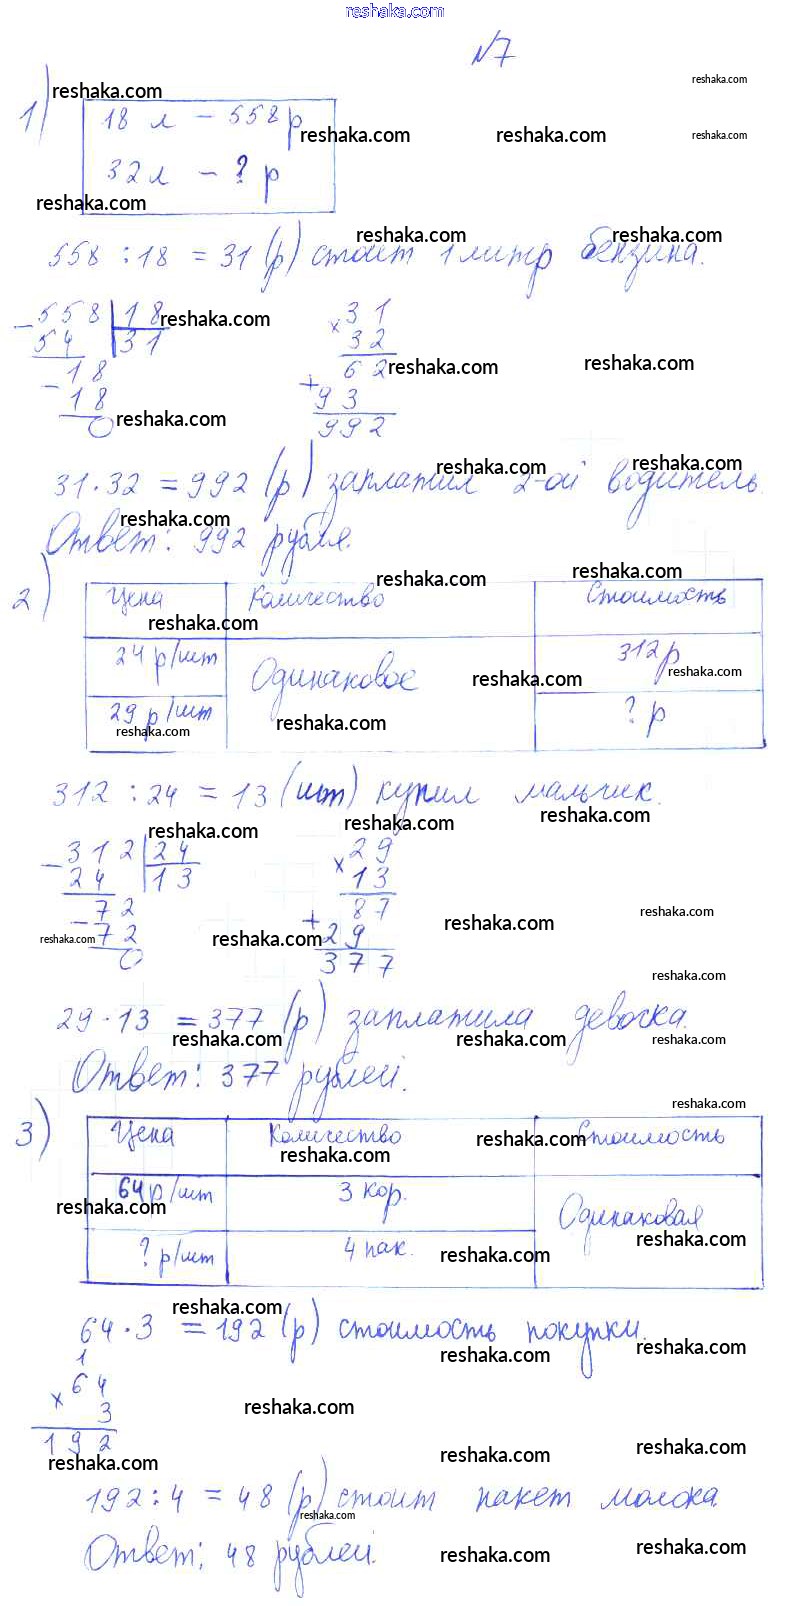 reshaka.com
№7
1)
18 л – 558 р
32 л – ? р
558 : 18 = 31 (р) стоит 1 литр бензина.
– 558 | 18
54 | 31
– 18
18
0
× 31
32
62
+ 93
992
31 · 32 = 992 (р) заплатил 2-ой водитель.
Ответ: 992 рубля.
2)
Цена Количество Стоимость
24 р/шт Одинаковое 312 р
29 р/шт ? р
312 : 24 = 13 (шт) купил мальчик.
– 312 | 24
24 | 13
– 72
72
0
× 29
13
87
+ 29
377
29 · 13 = 377 (р) заплатила девочка.
Ответ: 377 рублей.
3)
Цена Количество Стоимость
64 р/шт 3 кор. Одинаковая
? р/шт 4 пак.
64 · 3 = 192 (р) стоимость покупки.
1
× 64
3
192
192 : 4 = 48 (р) стоит пакет молока.
Ответ: 48 рублей.